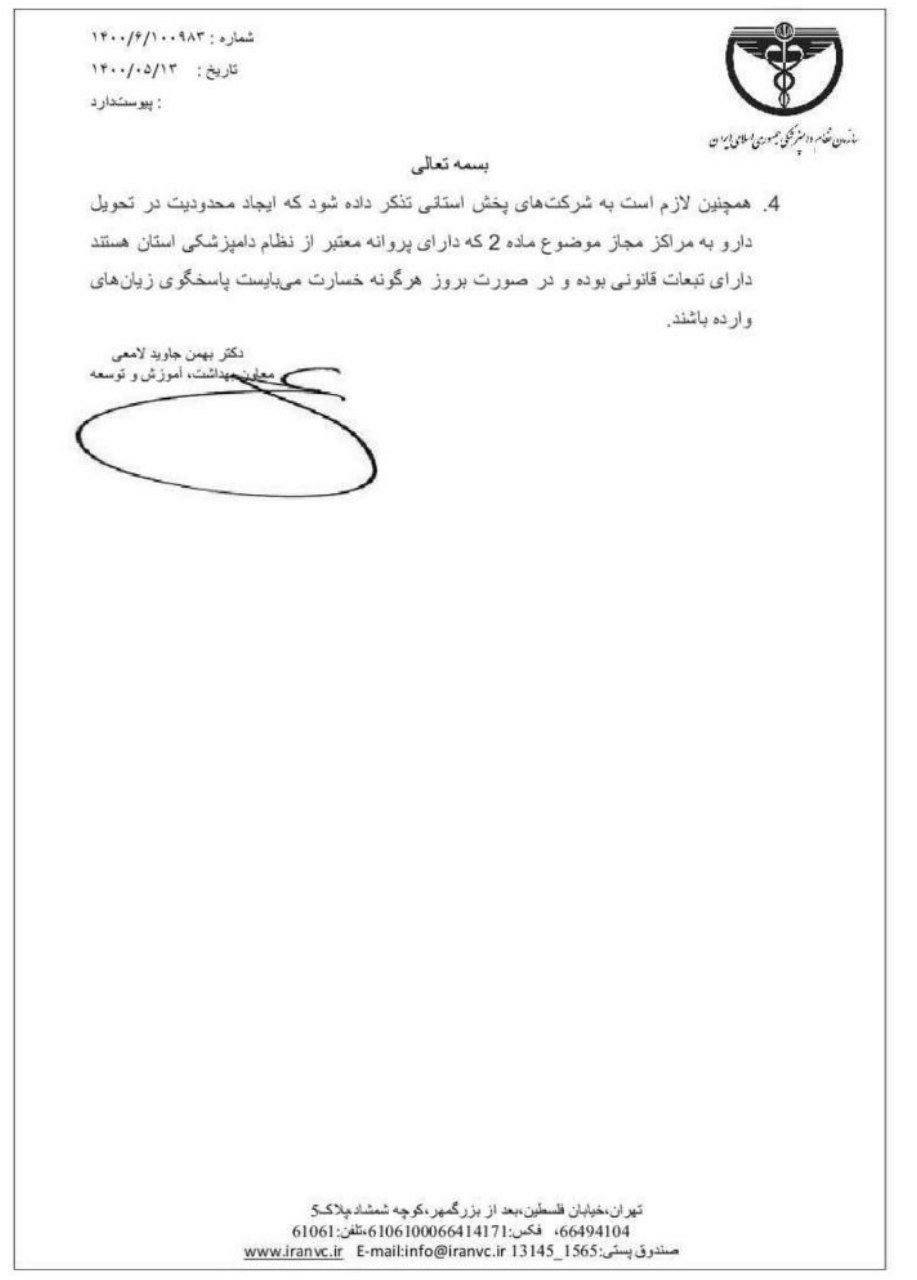 شماره : ۱۴۰۰/۶/۱۰۰۹۸۳
تاریخ : ۱۴۰۰/۰۵/۱۳
: پیوستدارد
سازمان نظام دامپزشکی جمهوری اسلامی ایران
بسمه تعالی
4. همچنین لازم است به شرکت‌های پخش استانی تذکر داده شود که ایجاد محدودیت در تحویل
دارو به مراکز مجاز موضوع ماده 2 که دارای پروانه معتبر از نظام دامپزشکی استان هستند
دارای تبعات قانونی بوده و در صورت بروز هرگونه خسارت می‌بایست پاسخگوی زیان‌های
وارده باشند.
دکتر بهمن جاوید لامعی
معاون بهداشت، آموزش و توسعه
تهران،خیابان فلسطین،بعد از بزرگمهر،کوچه شمشاد،پلاک5
66494104، فکس:6106100066414171،تلفن:61061
صندوق پستی:1565_13145 www.iranvc.ir E-mail:info@iranvc.ir